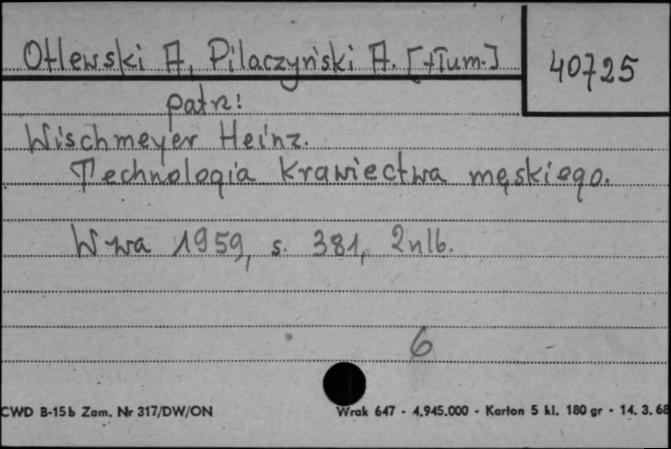 Otlewski A, Pilaczyński A. [tłum.]
40725
patrz:
Wischmeyer Heinz.
Technologia krawiectwa męskiego.
W-wa 1959, s. 381, 2nlb.
6
CWD B-15b Zam. Nr 317/DW/ON
Wrak 647 - 4.945.000 - Karton 5 kl. 180 gr - 14. 3. 68